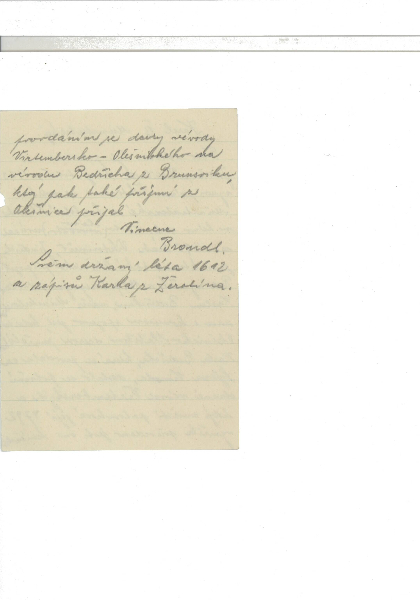 povodáním se dcery vévody
Virtembersko - Olešnického na
vévodu Bedřicha z Brunsviku,
ktrý pak také příjmí z
Olešnice přijal
Vincenc
Brandl.
Sněm držaný léta 1612
z zápisů Karla z Žerotína.